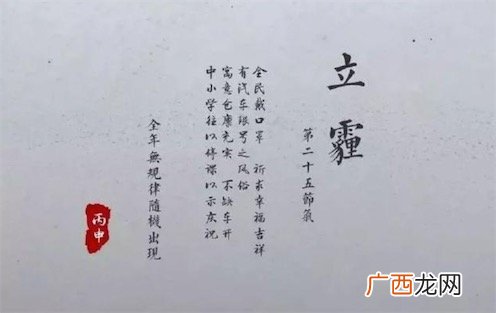 立霾
第二十五節氣
全民戴口罩 祈求幸福吉祥
有汽车限号之风俗
寓意仓康充实 不缺车开
中小学往以停课以示庆祝
全年無规律隨機出現
丙申
广西龙网